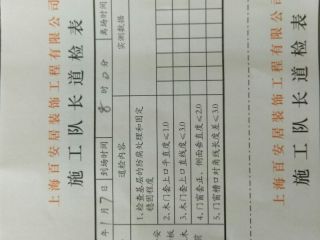 上海百安居装饰工程有限公司
施工队长道检表
年1月7日 到场时间 8时0分 离场时间
道检内容 实测数据
1、检查基层的防腐处理和固定
稳固程度
2、木门套上口平直度≤1.0
3、木门套上口直线度≤3.0
4、门窗套正、侧面垂直度≤2.0
5、门窗槽口对角线长度差≤3.0
安
板
木
前
上海百安居装饰工程有限公司
施工队长道检表